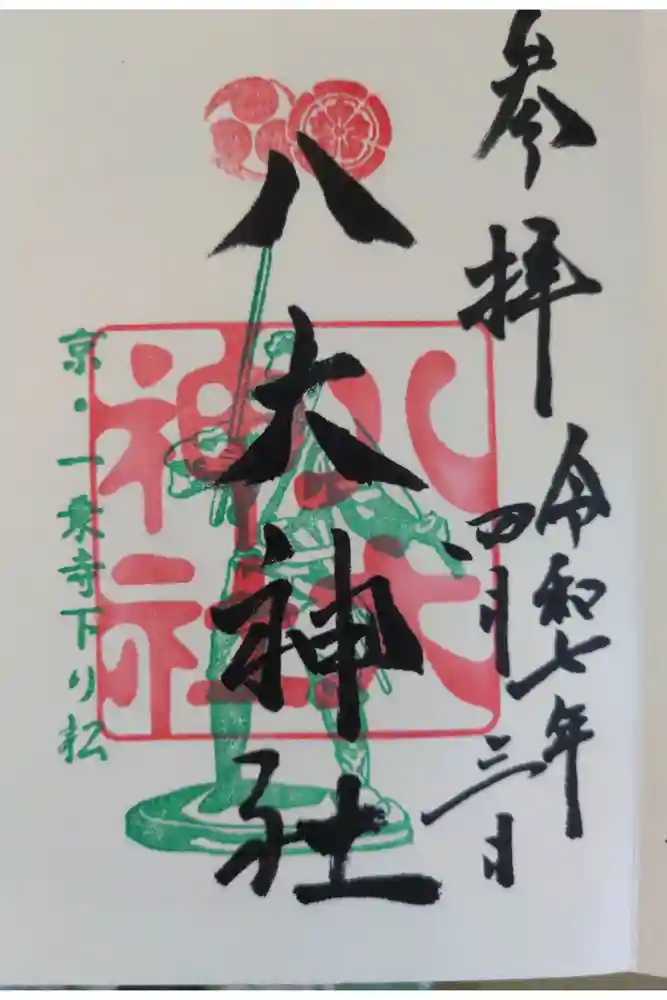 参拝
令和七年
四月三日
八大神社
八大神社
京・一乗寺下り松